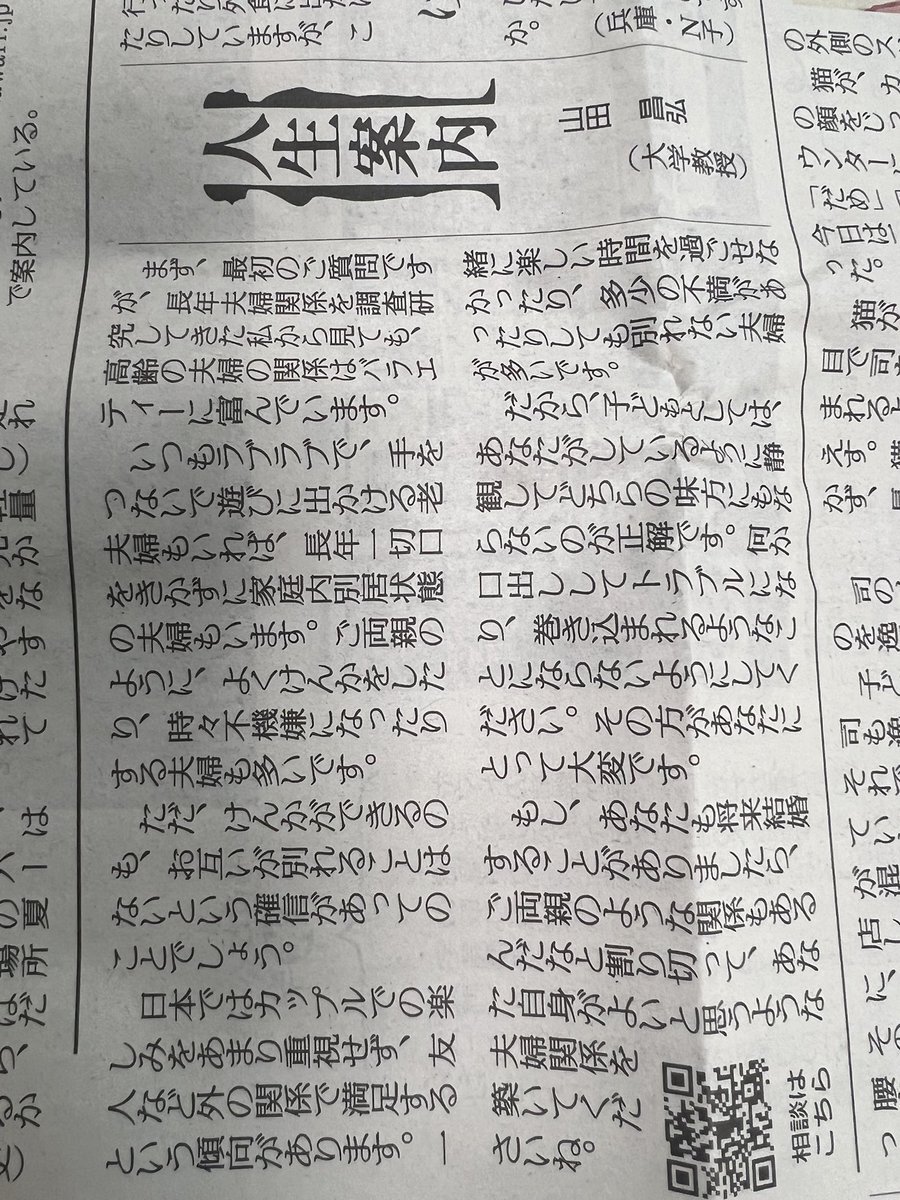 たりしていますが、こ
か。
(兵庫・N子)
人生案内
山田 昌弘
(大学教授)
まず、最初のご質問です
が、長年夫婦関係を調査研
究してきた私から見ても、
高齢の夫婦の関係はバラエ
ティーに富んでいます。
いつもラブラブで、手を
つないで遊びに出かける老
夫婦もいれば、長年一切口
をきかずに家庭内別居状態
の夫婦もいます。ご両親の
ように、よくけんかをした
り、時々不機嫌になったり
する夫婦も多いです。
ただ、けんかができるの
も、お互いが別れることは
ないという確信があっての
ことでしょう。
日本ではカップルでの楽
しみをあまり重視せず、友
人など外の関係で満足する
という傾向があります。一
緒に楽しい時間を過ごせな
かったり、多少の不満があ
ったりしても別れない夫婦
が多いです。
だから、子どもとしては、
あなたがしているように静
観してどちらの味方にもな
らないのが正解です。何か
口出ししてトラブルにな
り、巻き込まれるようなこ
とにならないようにしてく
ださい。その方があなたに
とって大変です。
もし、あなたも将来結婚
することがありましたら、
ご両親のような関係もある
んだなと割り切って、あな
た自身がよいと思うような
夫婦関係を
築いてくだ
さいね。
相談は
こちら
で案内している。
の外側のス
猫が、カ
の顔をじっ
ウンターに
「だめ」
今日は
った。
猫が